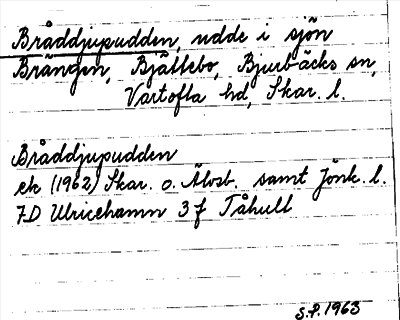 Bråddjupudden, udde i sjön
Brängen, Bjällebo, Bjurbäcks sn,
Vartofta hd, Skar. l.
Bråddjupudden
ek (1962) Skar. o. Älvsb. samt Jönk. l.
7D Ulricehamn 3 f Tåhull
S.P. 1963